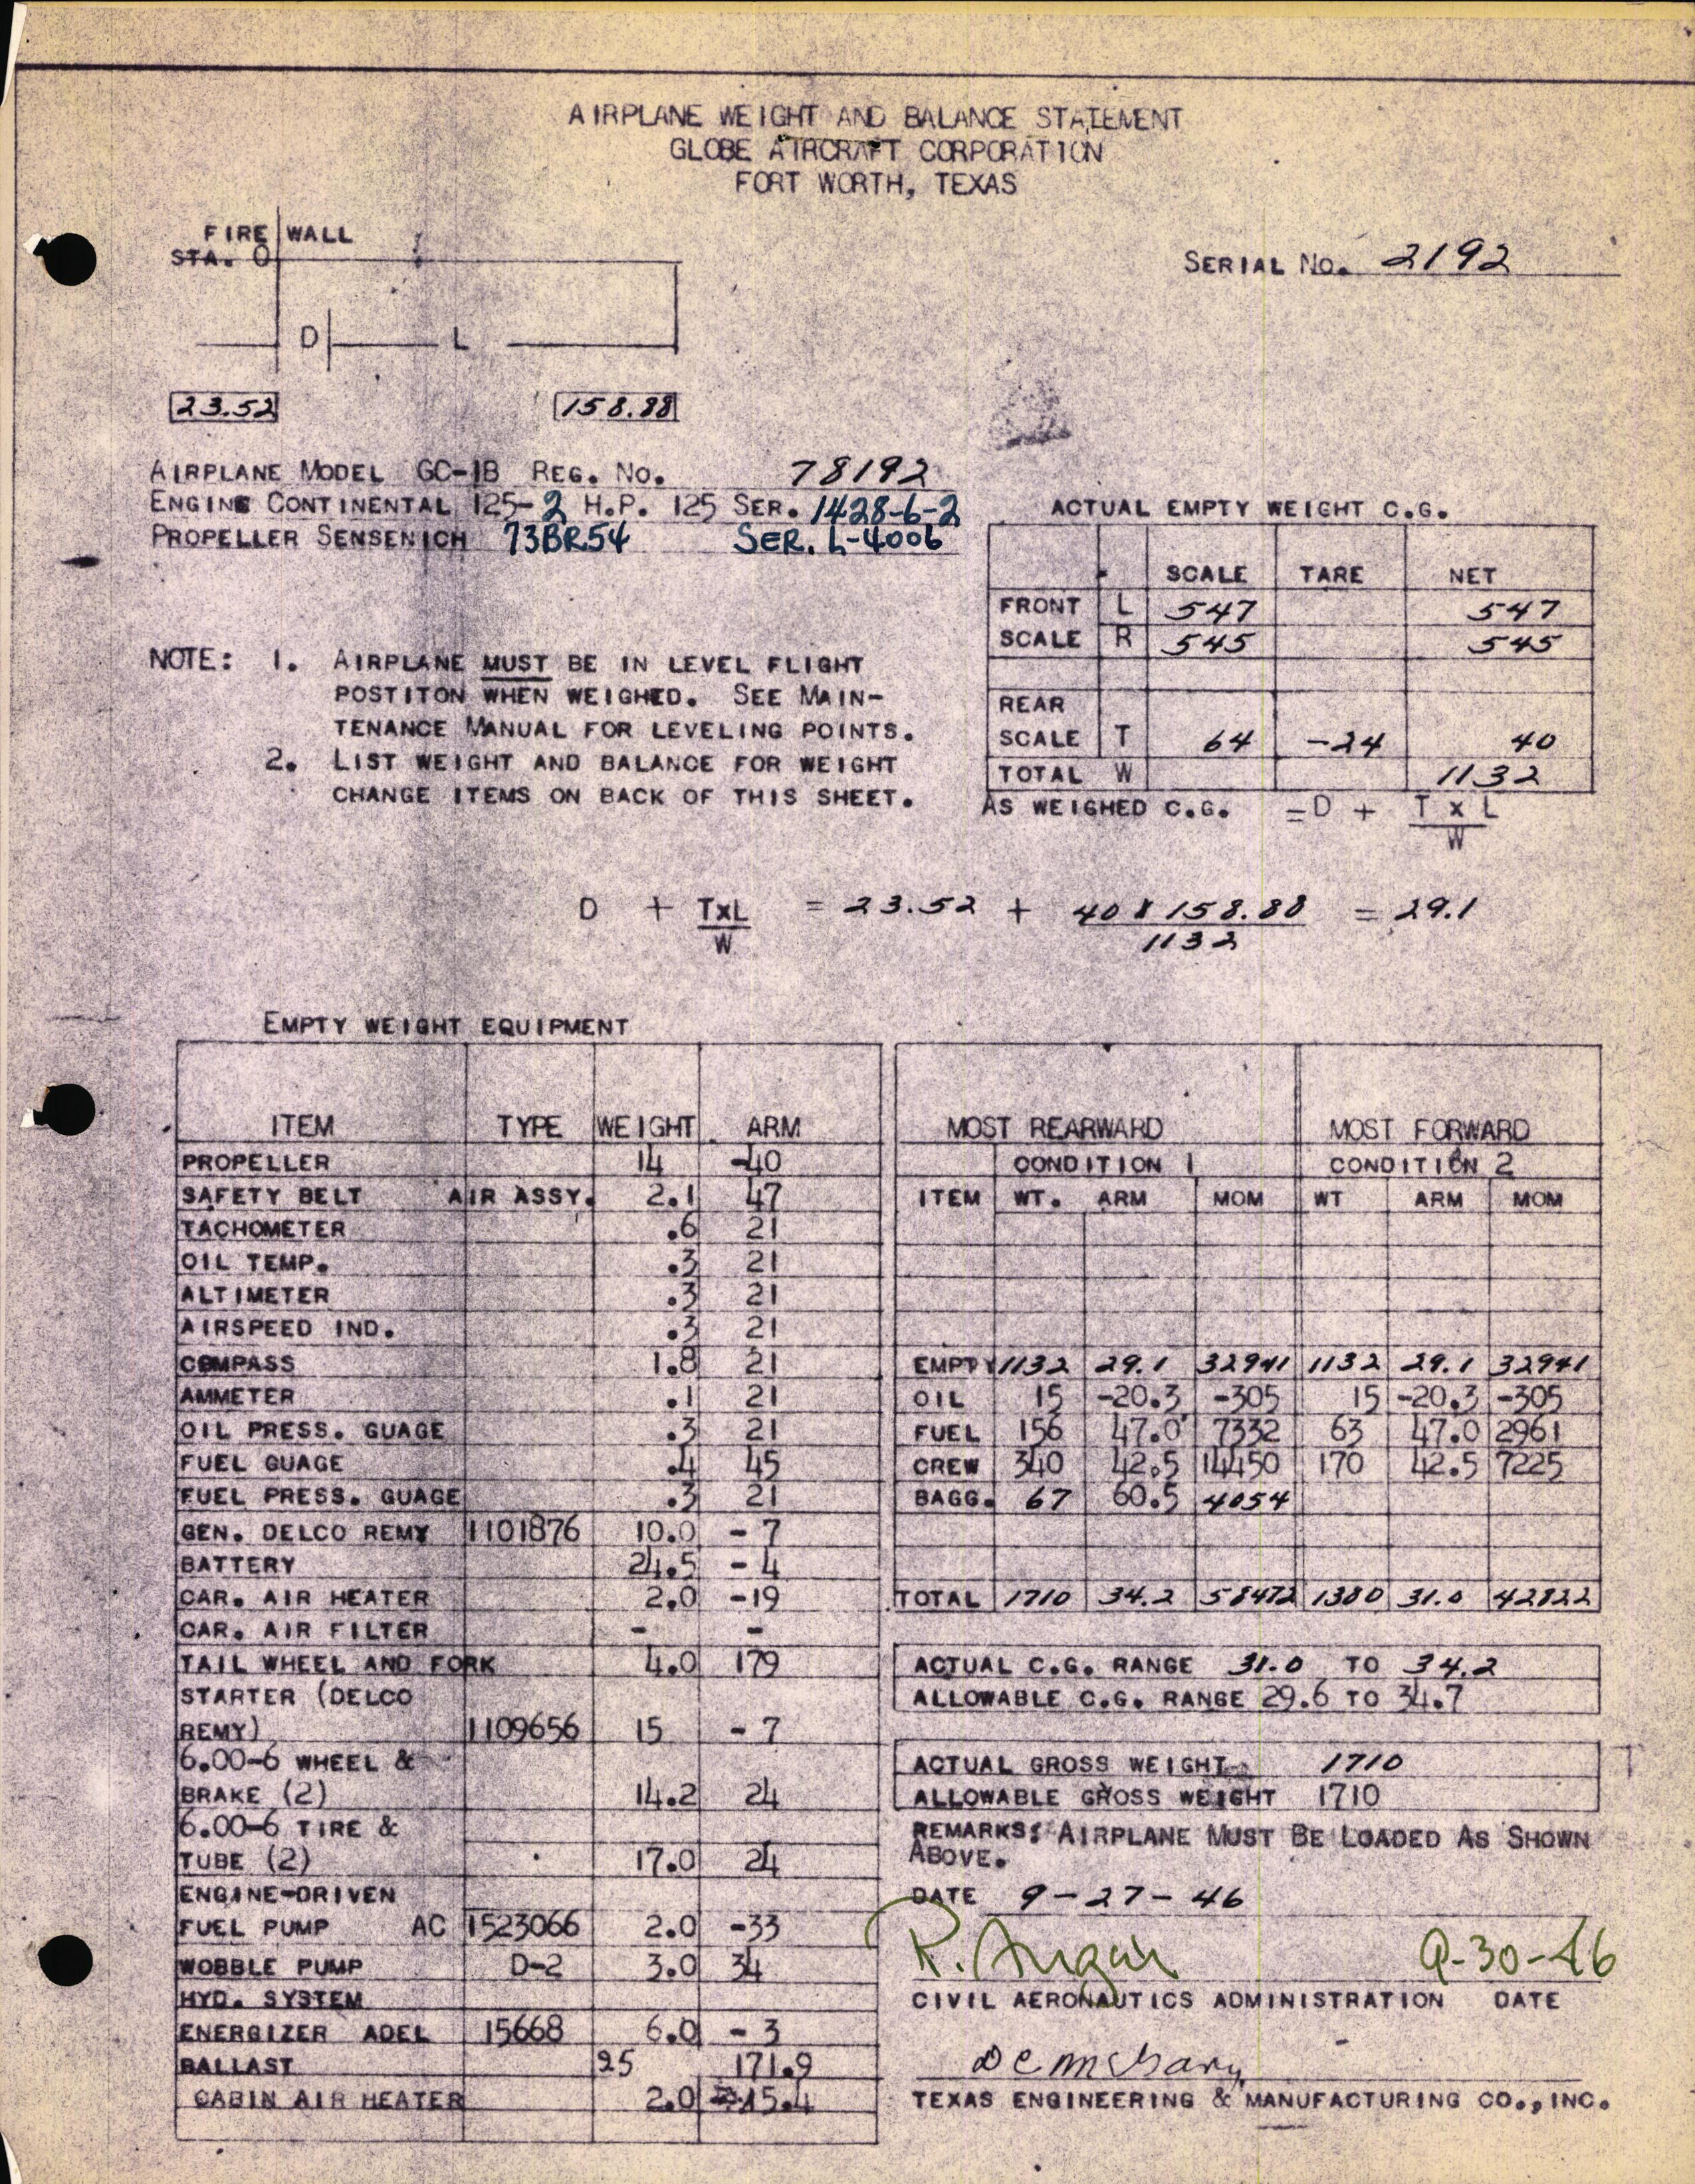 AIRPLANE WEIGHT AND BALANCE STATEMENT
GLOBE AIRCRAFT CORPORATION
FORT WORTH, TEXAS
FIRE WALL
STA. 0
SERIAL NO. 2192
D L
23.52 158.88
AIRPLANE MODEL GC-1B REG. NO. 78192
ENGINE CONTINENTAL 125-2 H.P. 125 SER. 1428-6-2
PROPELLER SENSENICH 73BR54 SER. L-4006
ACTUAL EMPTY WEIGHT C.G.
SCALE TARE NET
FRONT L 547 547
SCALE R 545 545
REAR
SCALE T 64 -24 40
TOTAL W 1132
AS WEIGHED C.G. = D + T x L
W
NOTE: 1. AIRPLANE MUST BE IN LEVEL FLIGHT
POSTITON WHEN WEIGHED. SEE MAIN-
TENANCE MANUAL FOR LEVELING POINTS.
2. LIST WEIGHT AND BALANCE FOR WEIGHT
CHANGE ITEMS ON BACK OF THIS SHEET.
D + TxL = 23.52 + 40 x 158.88 = 29.1
W 1132
EMPTY WEIGHT EQUIPMENT
ITEM TYPE WEIGHT ARM
PROPELLER 14 -40
SAFETY BELT AIR ASSY. 2.1 47
TACHOMETER .6 21
OIL TEMP. .3 21
ALTIMETER .3 21
AIRSPEED IND. .3 21
COMPASS 1.8 21
AMMETER .1 21
OIL PRESS. GUAGE .3 21
FUEL GUAGE .4 45
FUEL PRESS. GUAGE .3 21
GEN. DELCO REMY 1101876 10.0 - 7
BATTERY 24.5 - 4
CAR. AIR HEATER 2.0 -19
CAR. AIR FILTER - -
TAIL WHEEL AND FORK 4.0 179
STARTER (DELCO
REMY) 1109656 15 - 7
6.00-6 WHEEL &
BRAKE (2) 14.2 24
6.00-6 TIRE &
TUBE (2) 17.0 24
ENGINE-DRIVEN
FUEL PUMP AC 1523066 2.0 -33
WOBBLE PUMP D-2 3.0 34
HYD. SYSTEM
ENERGIZER ADEL 15668 6.0 - 3
BALLAST 25 171.9
CABIN AIR HEATER 2.0 -15.4
MOST REARWARD MOST FORWARD
CONDITION 1 CONDITION 2
ITEM WT. ARM MOM WT ARM MOM
EMPTY 1132 29.1 32941 1132 29.1 32941
OIL 15 -20.3 -305 15 -20.3 -305
FUEL 156 47.0 7332 63 47.0 2961
CREW 340 42.5 14450 170 42.5 7225
BAGG. 67 60.5 4054
TOTAL 1710 34.2 58472 1380 31.0 42822
ACTUAL C.G. RANGE 31.0 TO 34.2
ALLOWABLE C.G. RANGE 29.6 TO 34.7
ACTUAL GROSS WEIGHT 1710
ALLOWABLE GROSS WEIGHT 1710
REMARKS: AIRPLANE MUST BE LOADED AS SHOWN
ABOVE.
DATE 9-27-46
R. 9-30-46
CIVIL AERONAUTICS ADMINISTRATION DATE
TEXAS ENGINEERING & MANUFACTURING CO., INC.